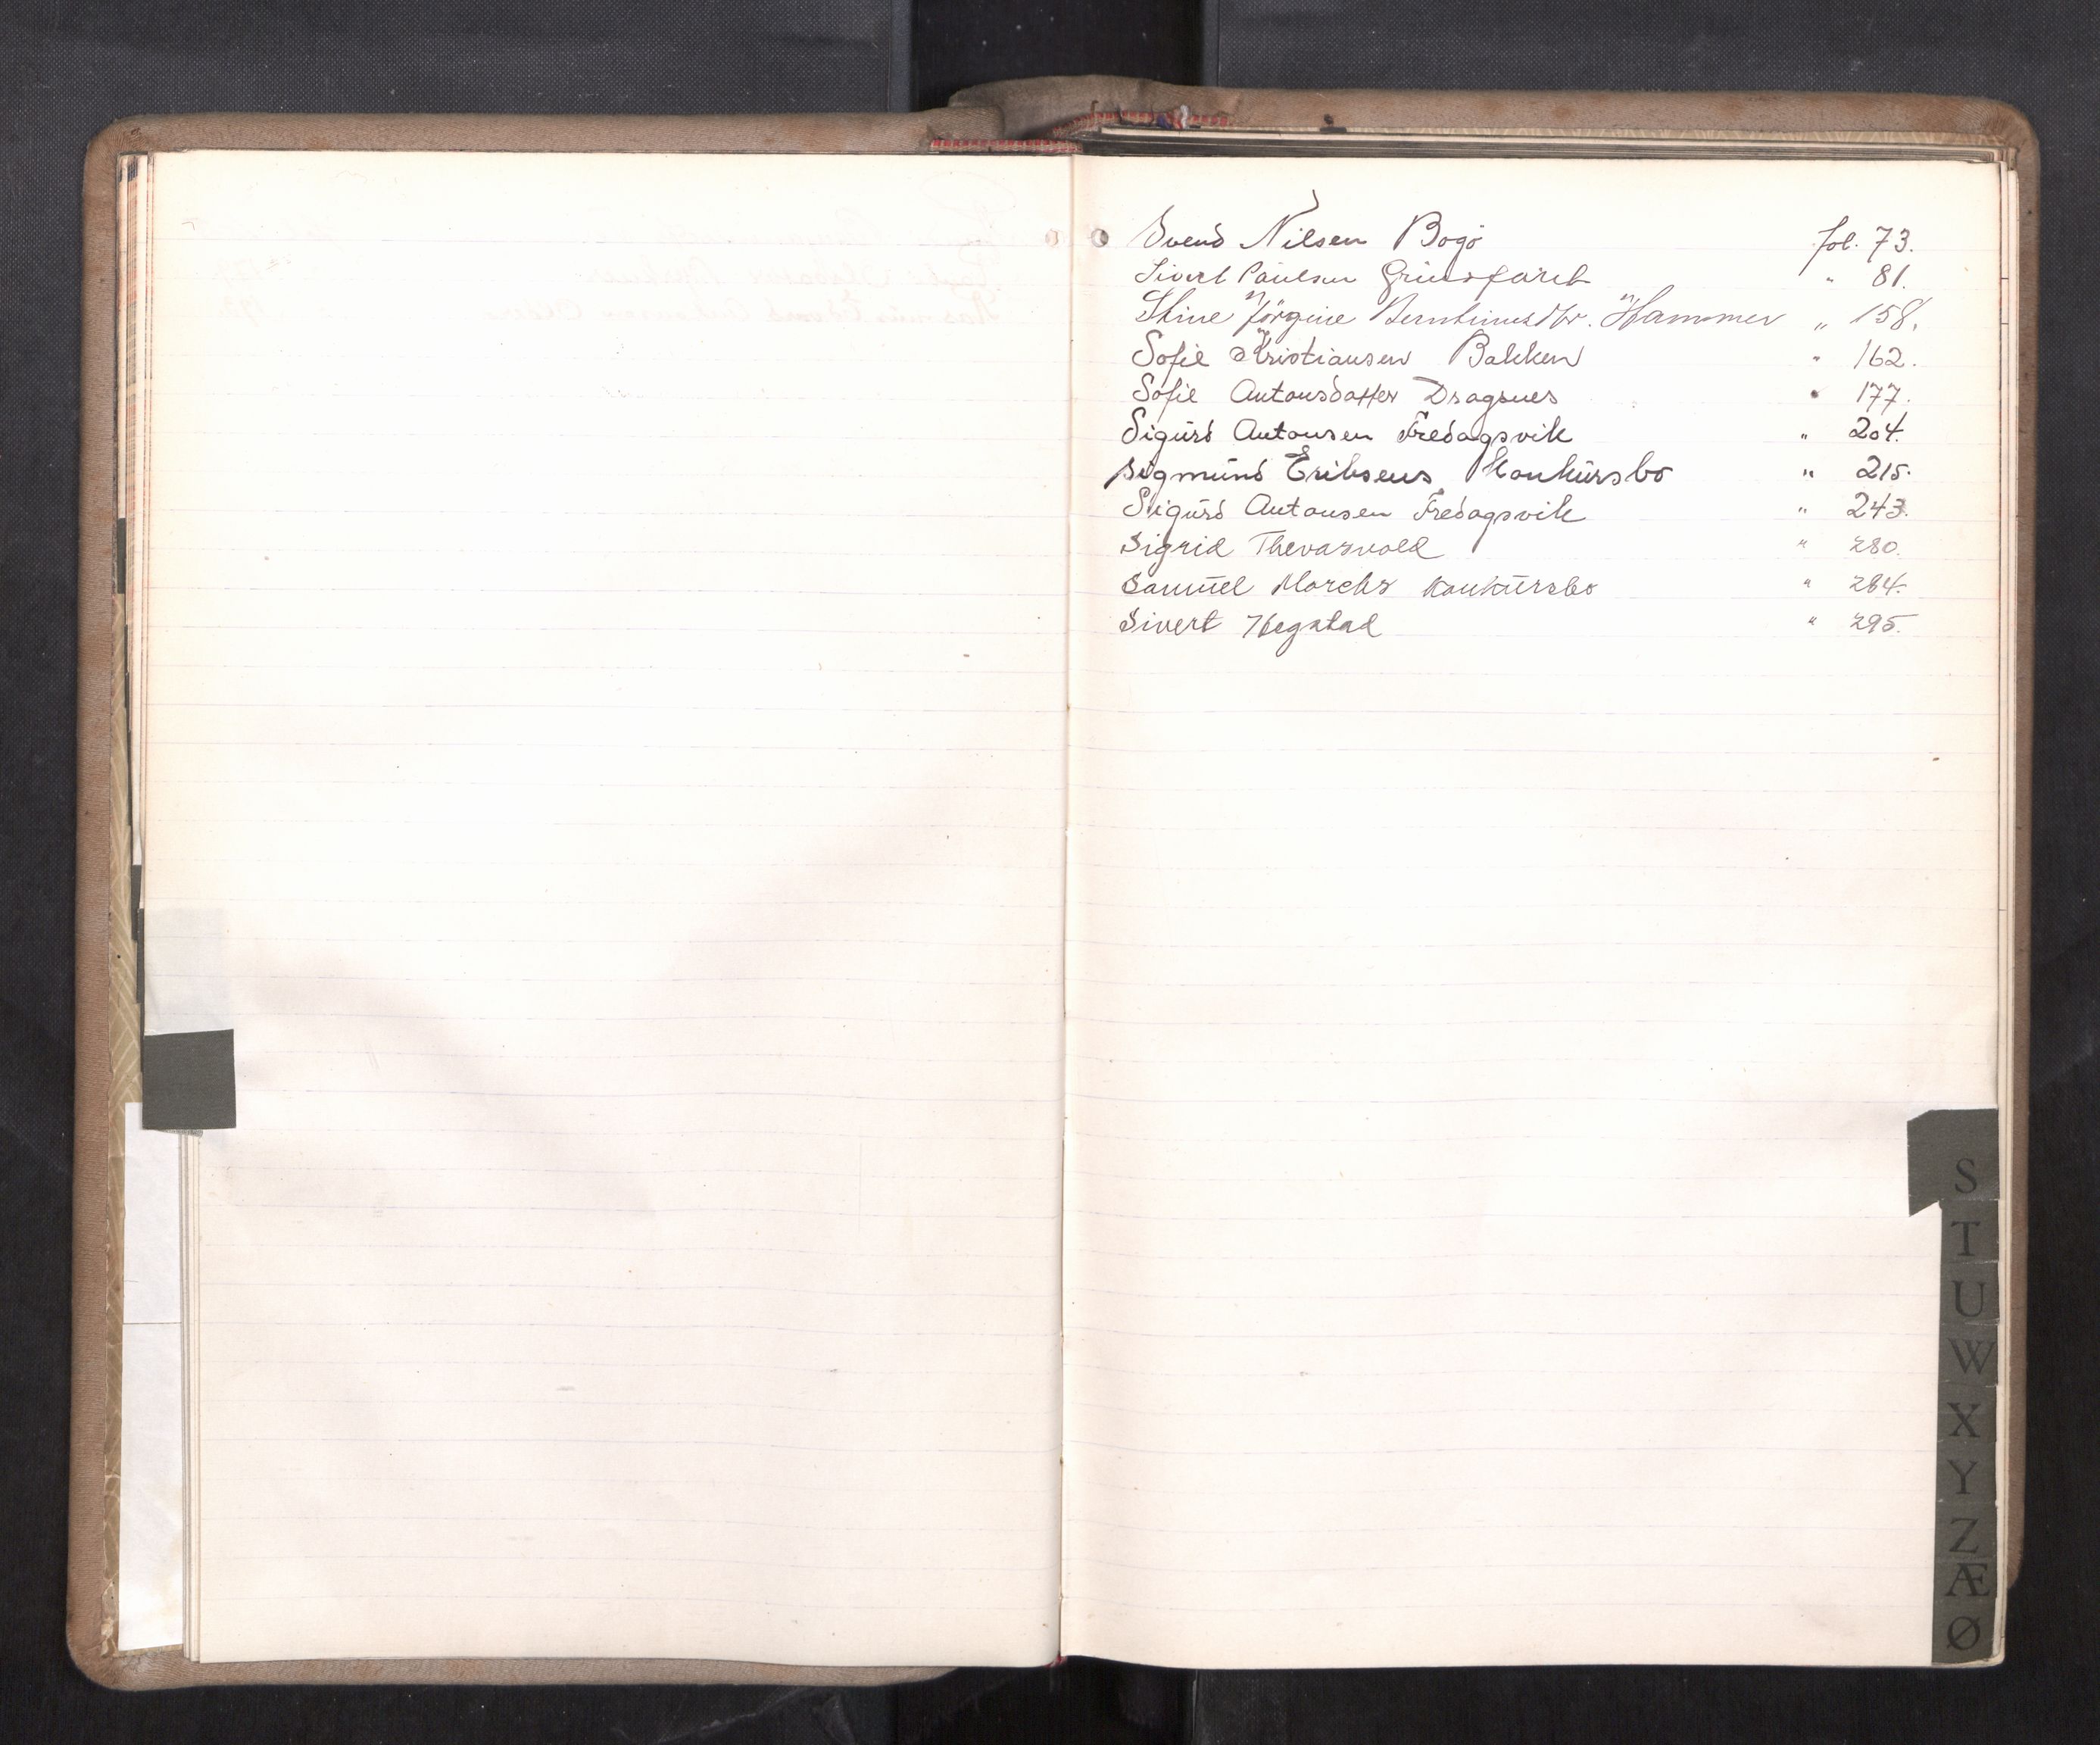 Svend Nilsen Bogö fol. 73.
Sivert Paulsen Grinsfaret " 81.
Stine Jörgine Berntinusdtr. Hammer " 158.
Sofie Kristiansen Bakken " 162.
Sofie Antonsdatter Dragsnes " 177.
Sigurd Antonsen Fredagsvik " 204.
Sigmund Eriksens Konkursbo " 215.
Sigurd Antonsen Fredagsvik " 243.
Sigrid Thevasvold " 280.
Samuel Morchs Konkursbo " 284.
Sivert Hegstad " 295.
S
T
U
W
X
Y
Z
Æ
Ø